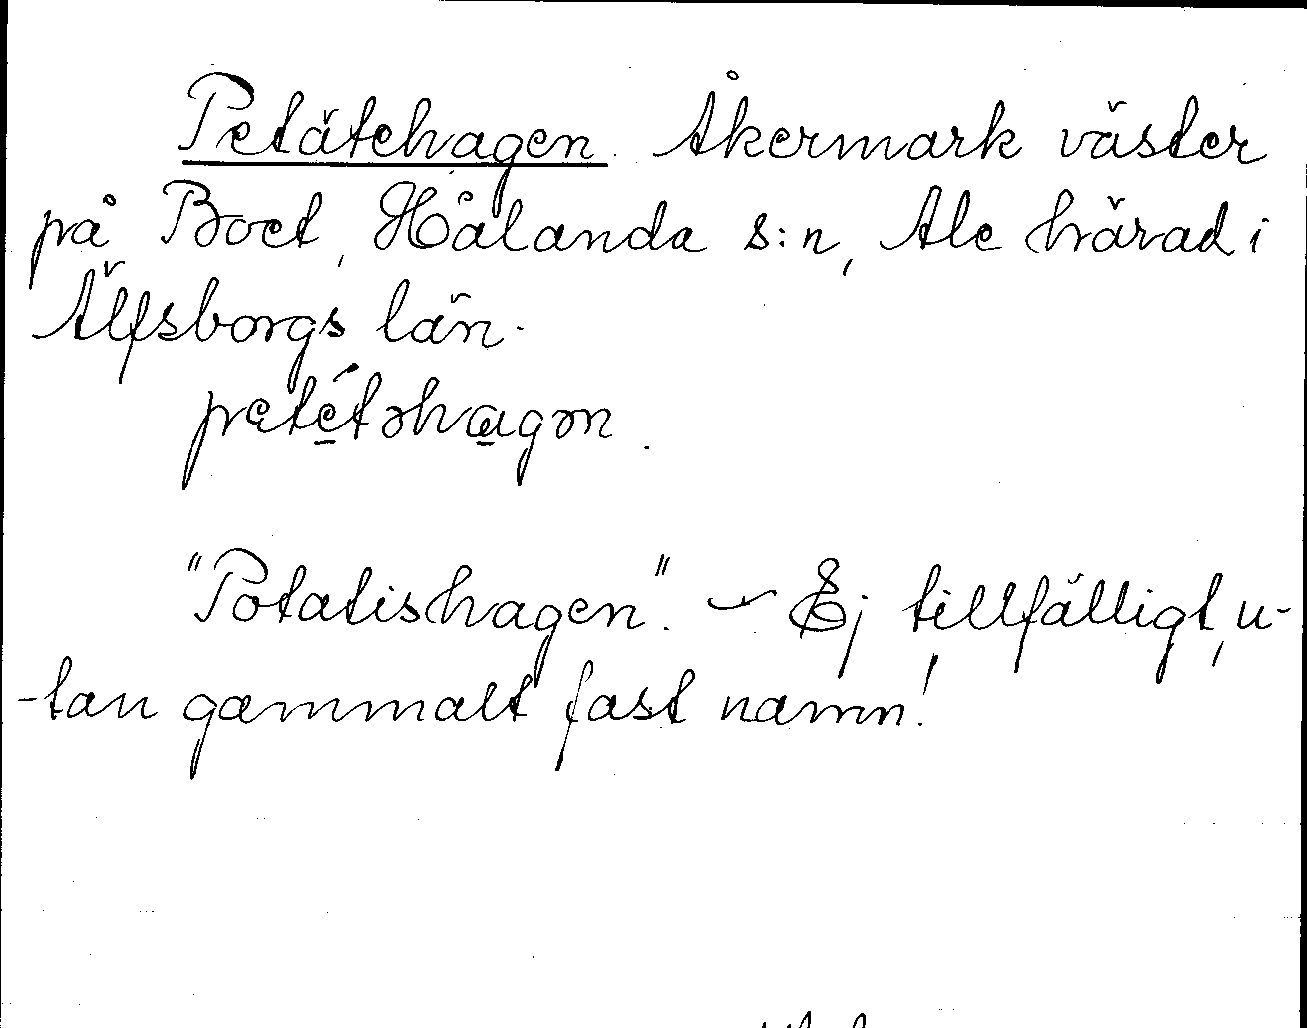 Petätehagen. Åkermark väster
på Boet, Hålanda s:n, Ale härad i
Älfsborgs län.
petét̲əhagən.
"Potatishagen". – Ej tillfälligt, u-
-tan gammalt fast namn!